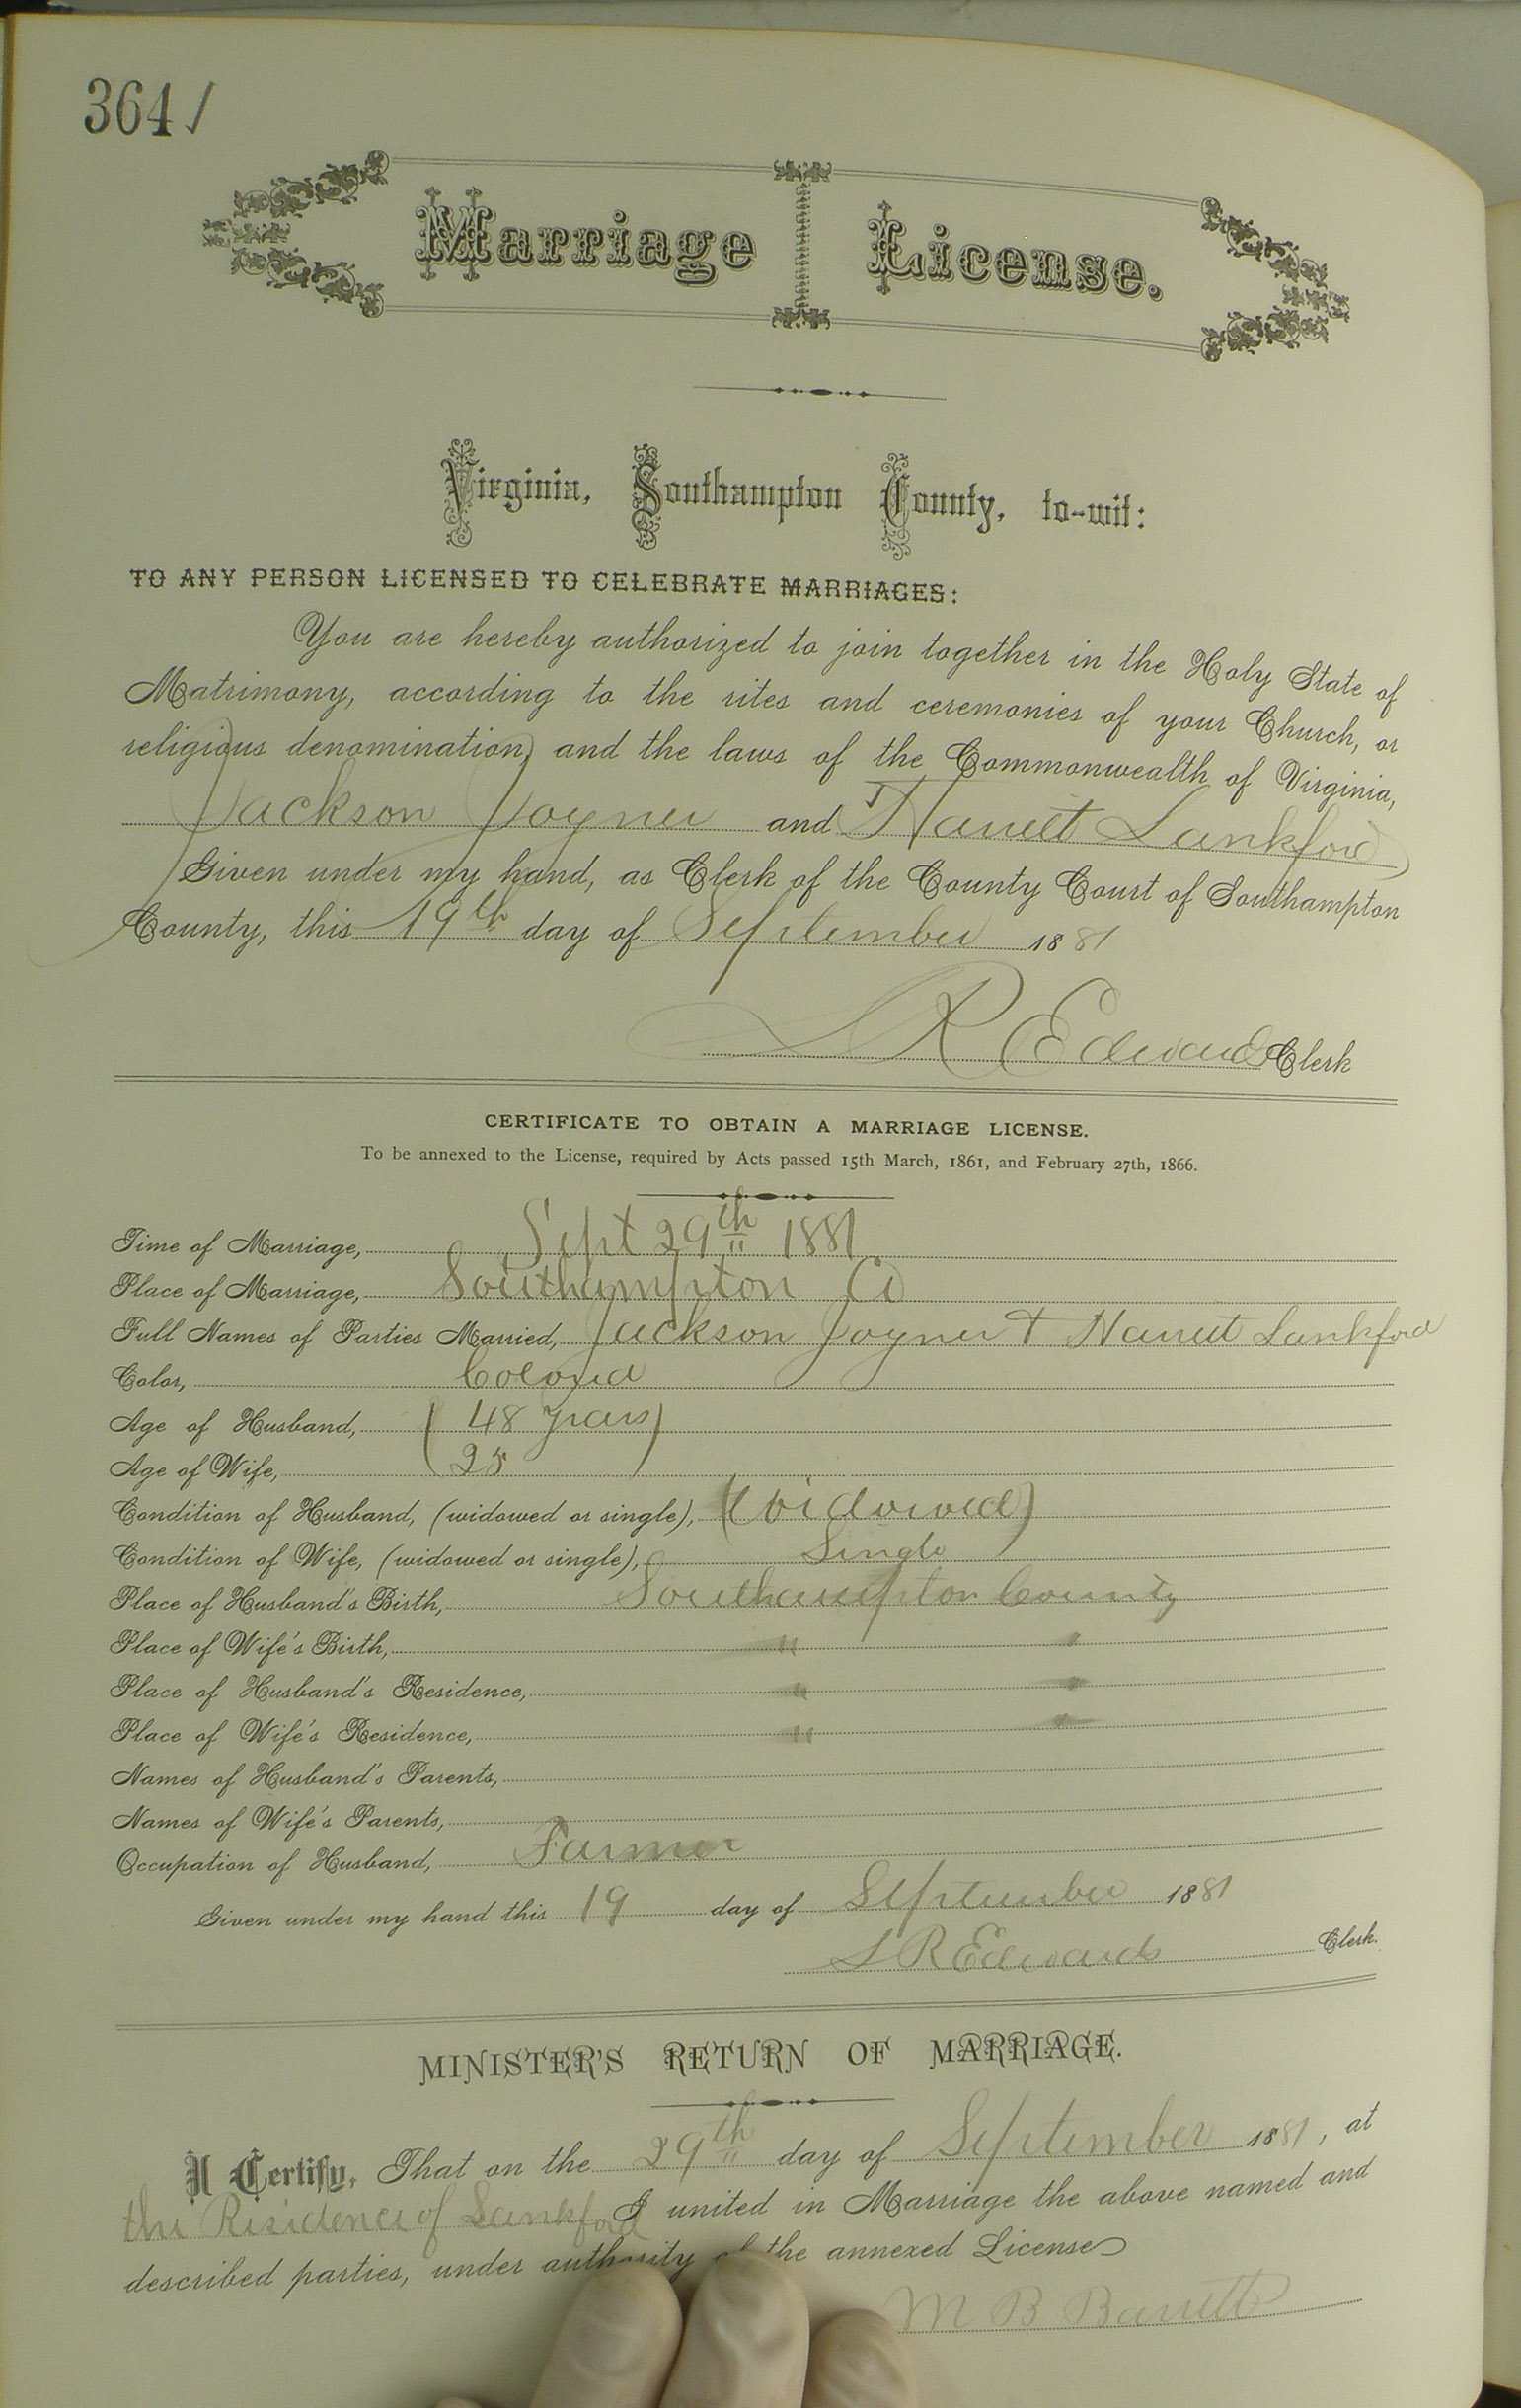 364 /
Marriage License.
Virginia, Southampton County, to-wit:
TO ANY PERSON LICENSED TO CELEBRATE MARRIAGES:
You are hereby authorized to join together in the Holy State of
Matrimony, according to the rites and ceremonies of your Church, or
religious denomination, and the laws of the Commonwealth of Virginia,
Jackson Joyner and Harriet Lankford
Given under my hand, as Clerk of the County Court of Southampton
County, this 19th day of September 1881
L R Edwards Clerk
CERTIFICATE TO OBTAIN A MARRIAGE LICENSE.
To be annexed to the License, required by Acts passed 15th March, 1861, and February 27th, 1866.
Time of Marriage, Sept 29th 1881
Place of Marriage, Southampton Co
Full Names of Parties Married, Jackson Joyner & Harriet Lankford
Color, Colored
Age of Husband, 48 years
Age of Wife, 25
Condition of Husband, (widowed or single), (Widowed)
Condition of Wife, (widowed or single), Single
Place of Husband's Birth, Southampton County
Place of Wife's Birth, " "
Place of Husband's Residence, " "
Place of Wife's Residence, " "
Names of Husband's Parents,
Names of Wife's Parents,
Occupation of Husband, Farmer
Given under my hand this 19 day of September 1881
L R Edwards Clerk.
MINISTER'S RETURN OF MARRIAGE.
I Certify, That on the 29th day of September 1881, at
the Residence of Lankford I united in Marriage the above named and
described parties, under authority of the annexed License
M B Barrett